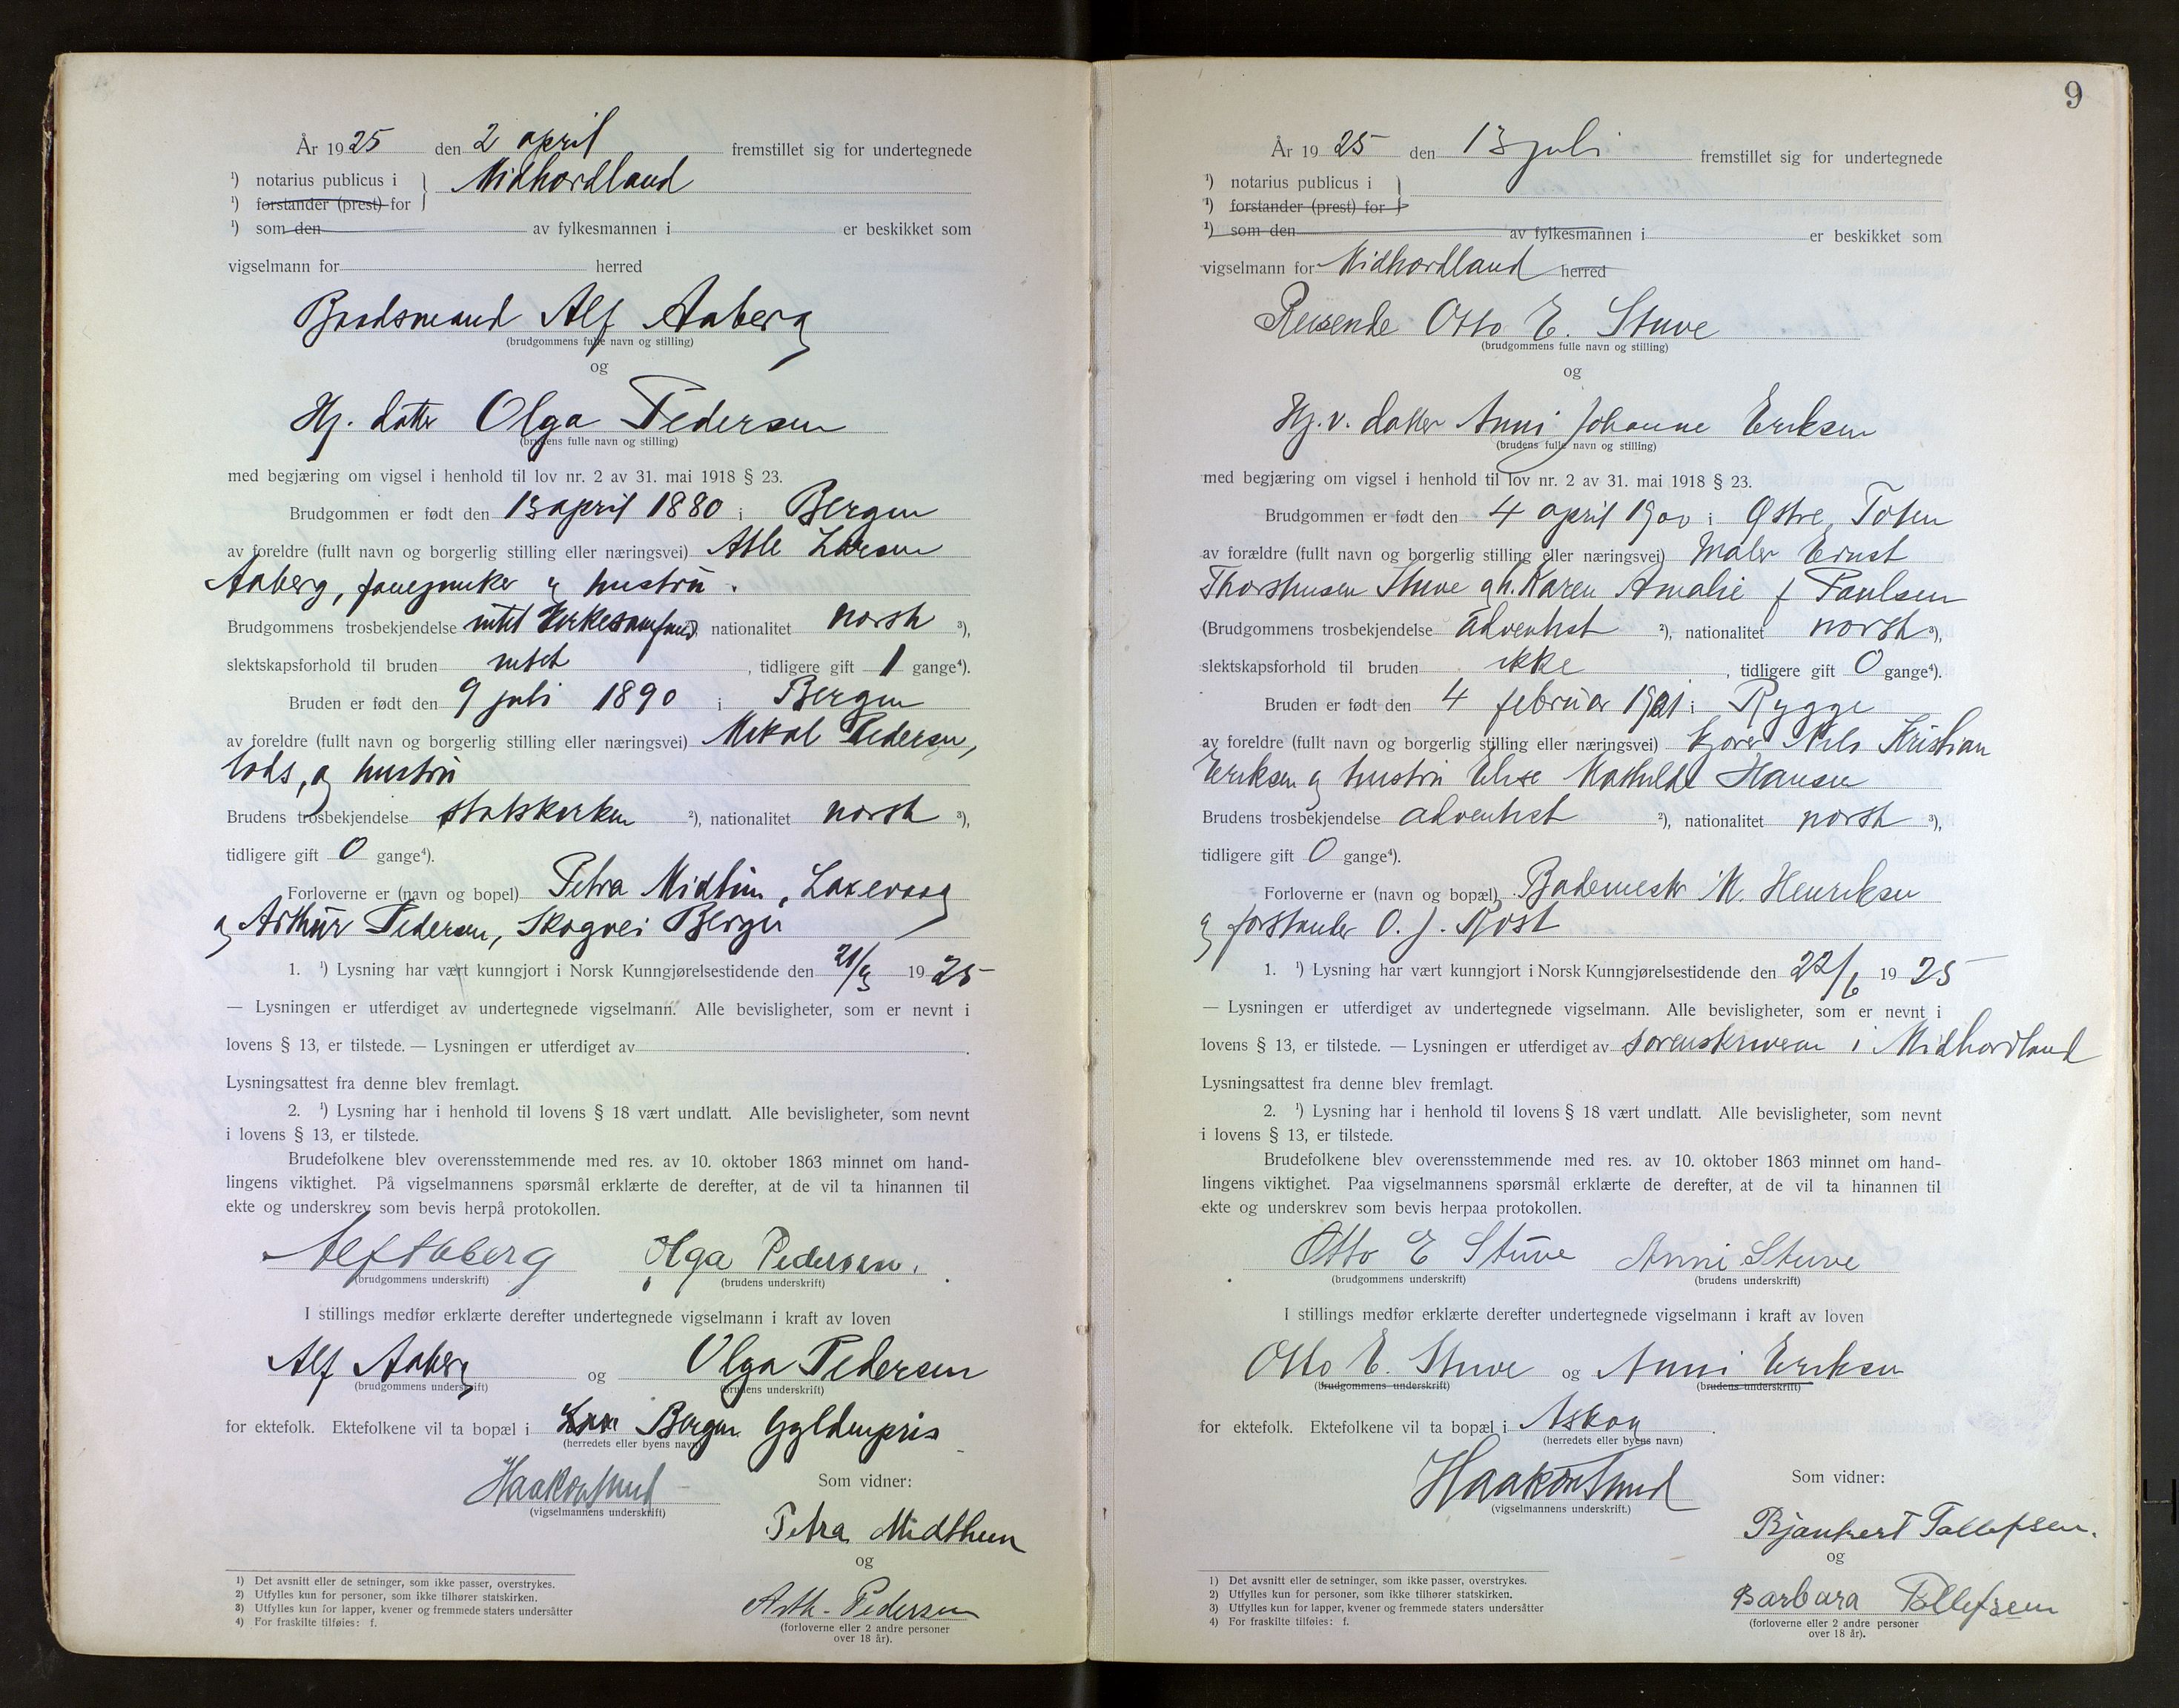 År 1925 den 2 april fremstillet sig for undertegnede
¹) notarius publicus i } Midhordland
¹) forstander (prest) for
¹) som den av fylkesmannen i er beskikket som
vigselmann for herred
Baadsmand Alf Aaberg
(brudgommens fulle navn og stilling)
og
Hj. datter Olga Pedersen
(brudens fulle navn og stilling)
med begjæring om vigsel i henhold til lov nr. 2 av 31. mai 1918 § 23.
Brudgommen er født den 13 april 1880 i Bergen
av foreldre (fullt navn og borgerlig stilling eller næringsvei) Atle Larsen
Aaberg, fanejunker og hustru.
Brudgommens trosbekjendelse intet kirkesamfund nationalitet norsk ³),
slektskapsforhold til bruden intet , tidligere gift 1 gange⁴).
Bruden er født den 9 juli 1890 i Bergen
av foreldre (fullt navn og borgerlig stilling eller næringsvei) Mikal Pedersen,
lods, og hustru
Brudens trosbekjendelse statskirken ²), nationalitet norsk ³),
tidligere gift 0 gange⁴).
Forloverne er (navn og bopel) Petra Midttun, Laxevaag
og Arthur Pedersen, Skogvei Bergen
1. ¹) Lysning har vært kunngjort i Norsk Kunngjørelsestidende den 21/3 1925
— Lysningen er utferdiget av undertegnede vigselmann. Alle bevisligheter, som er nevnt i
lovens § 13, er tilstede. — Lysningen er utferdiget av .
Lysningsattest fra denne blev fremlagt.
2. ¹) Lysning har i henhold til lovens § 18 vært undlatt. Alle bevisligheter, som nevnt
i lovens § 13, er tilstede.
Brudefolkene blev overensstemmende med res. av 10. oktober 1863 minnet om hand-
lingens viktighet. På vigselmannens spørsmål erklærte de derefter, at de vil ta hinannen til
ekte og underskrev som bevis herpå protokollen.
Alf Aaberg Olga Pedersen.
(brudgommens underskrift) (brudens underskrift)
I stillings medfør erklærte derefter undertegnede vigselmann i kraft av loven
Alf Aaberg og Olga Pedersen
(brudgommens underskrift) (brudens underskrift)
for ektefolk. Ektefolkene vil ta bopæl i Bergen Gyldenpris
(herredets eller byens navn)
Haakon Sund
(vigselmannens underskrift)
Som vidner:
Petra Midtthun
og
Arth. Pedersen
(forloverne eller 2 andre personer
over 18 år).
1) Det avsnitt eller de setninger, som ikke passer, overstrykes.
2) Utfylles kun for personer, som ikke tilhører statskirken.
3) Utfylles kun for lapper, kvener og fremmede staters undersåtter
4) For fraskilte tilføies: f.
9
År 1925 den 13 juli fremstillet sig for undertegnede
¹) notarius publicus i }
¹) forstander (prest) for
¹) som den av fylkesmannen i er beskikket som
vigselmann for Midhordland herred
Reisende Otto E. Stuve
(brudgommens fulle navn og stilling)
og
Hj. v. datter Anni Johanne Eriksen
(brudens fulle navn og stilling)
med begjæring om vigsel i henhold til lov nr. 2 av 31. mai 1918 § 23.
Brudgommen er født den 4 april 1900 i Østre Toten
av forældre (fullt navn og borgerlig stilling eller næringsvei) Maler Ernst
Thorshusen Stuve og h. Karen Amalie f Paulsen
(Brudgommens trosbekjendelse adventist ²), nationalitet norsk ³),
slektskapsforhold til bruden ikke , tidligere gift 0 gange⁴).
Bruden er født den 4 februar 1901 i Rygge
av foreldre (fullt navn og borgerlig stilling eller næringsvei) kjører Nils Kristian
Eriksen og hustru Elise Mathilde Hansen
Brudens trosbekjendelse adventist ²), nationalitet norsk ³),
tidligere gift 0 gange⁴).
Forloverne er (navn og bopæl) Bademester M. Henriksen
og forstander O. J. Rost
1. ¹) Lysning har vært kunngjort i Norsk Kunngjørelsestidende den 22/6 1925
— Lysningen er utferdiget av undertegnede vigselmann. Alle bevisligheter, som er nevnt i
lovens § 13, er tilstede. — Lysningen er utferdiget av sorenskriveren i Midhordland
Lysningsattest fra denne blev fremlagt.
2. ¹) Lysning har i henhold til lovens § 18 vært undlatt. Alle bevisligheter, som nevnt
i lovens § 13, er tilstede.
Brudefolkene blev overensstemmende med res. av 10. oktober 1863 minnet om hand-
lingens viktighet. Paa vigselmannens spørsmål erklærte de derefter, at de vil ta hinannen til
ekte og underskrev som bevis herpaa protokollen.
Otto E Stuve Anni Stuve
(brudgommens underskrift) (brudens underskrift)
I stillings medfør erklærte derefter undertegnede vigselmann i kraft av loven
Otto E. Stuve og Anni Eriksen
(brudgommens underskrift) (brudens underskrift)
for ektefolk. Ektefolkene vil ta bopæl i Askøy .
(herredets eller byens navn)
Haakon Sund
(vigselmannens underskrift.)
Som vidner:
Tollefsen.
og
Barbara Tollefsen
(forloverne eller 2 andre personer
over 18 år).
1) Det avsnitt eller de setninger, som ikke passer, overstrykes.
2) Utfylles kun for personer, som ikke tilhører statskirken.
3) Utfylles kun for lapper, kvener og fremmede staters undersåtter
4) For fraskilte tilføies: f.